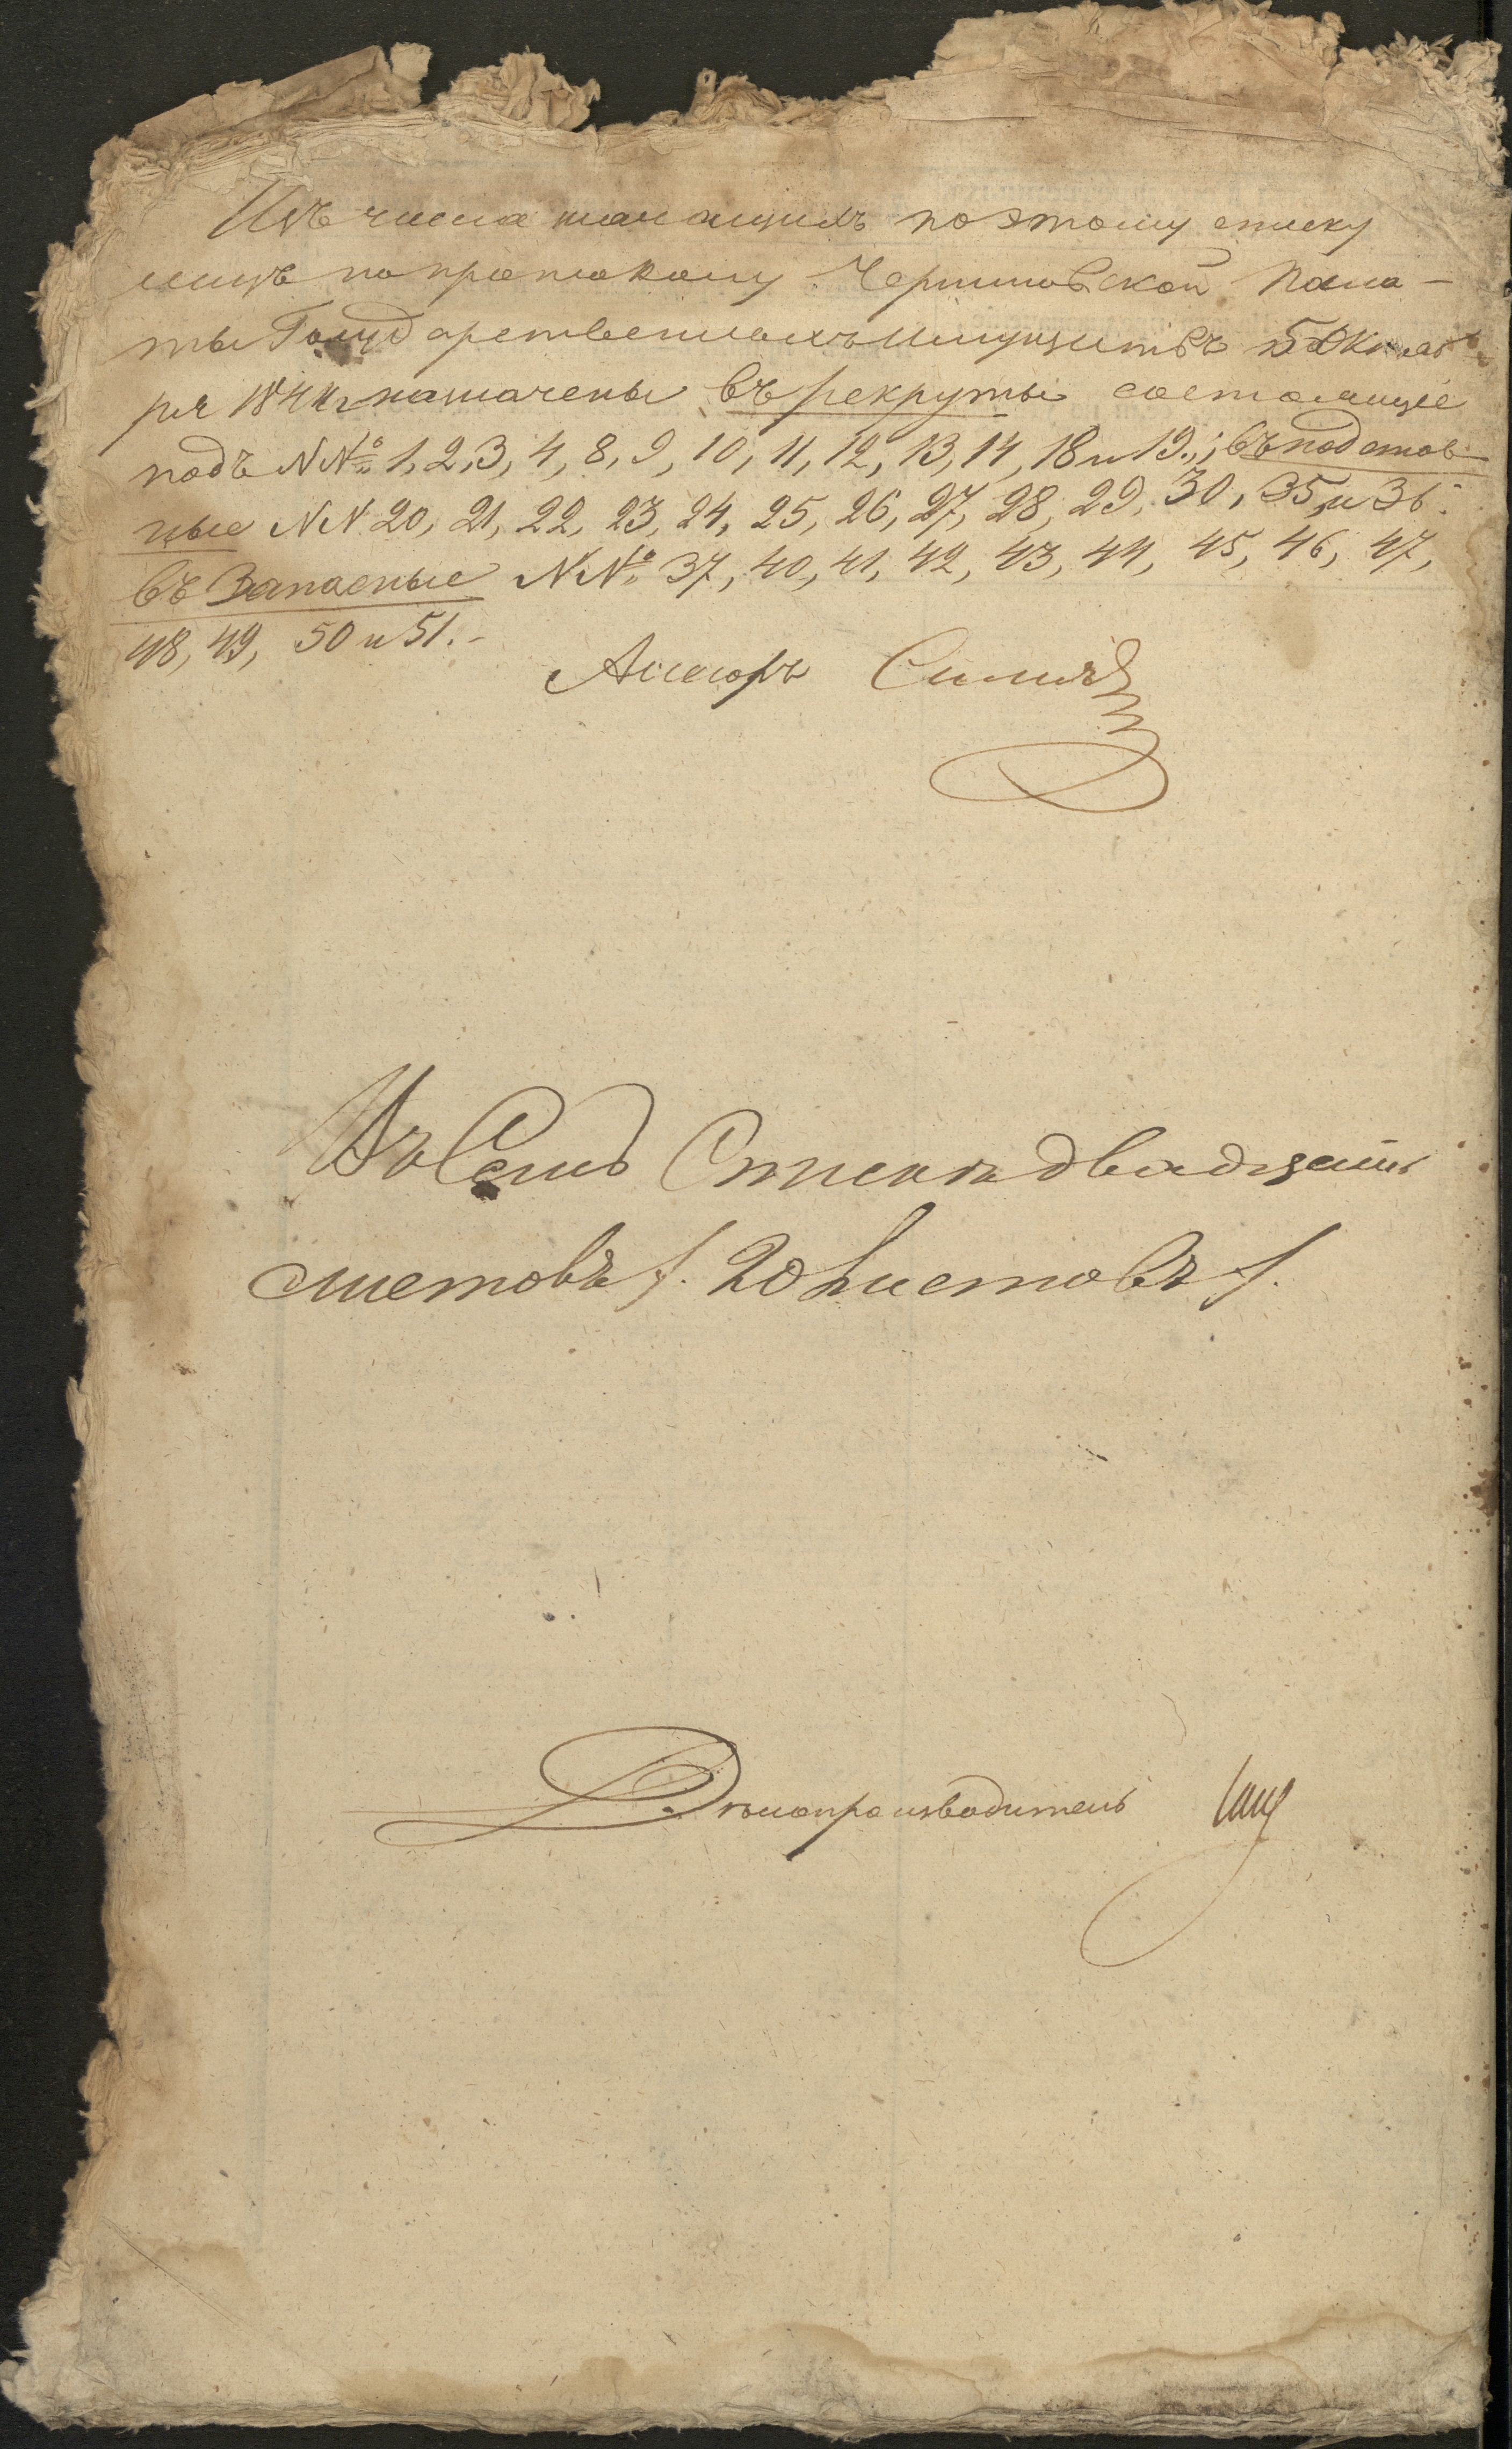 Изъ числа значащихся по этому списку
лицъ по протоколу Черниговской Пала-
ты Государственныхъ Имуществъ 5 Октяб
ря 1844 г назначены въ рекруты состоящіе
подъ N№ 1, 2, 3, 4, 8, 9, 10, 11, 12, 13, 14, 18 и 19.; въ подстав-
ные NN 20, 21, 22, 23, 24, 25, 26, 27, 28, 29, 30, 35, и 36.
въ Запасные N№ 37, 40, 41, 42, 43, 44, 45, 46, 47,
48, 49, 50 и 51.-
Ассесоръ
Въ Семъ Списки двадцать
листовъ /. 20 Листовъ /.
Дѣлопроизводитель